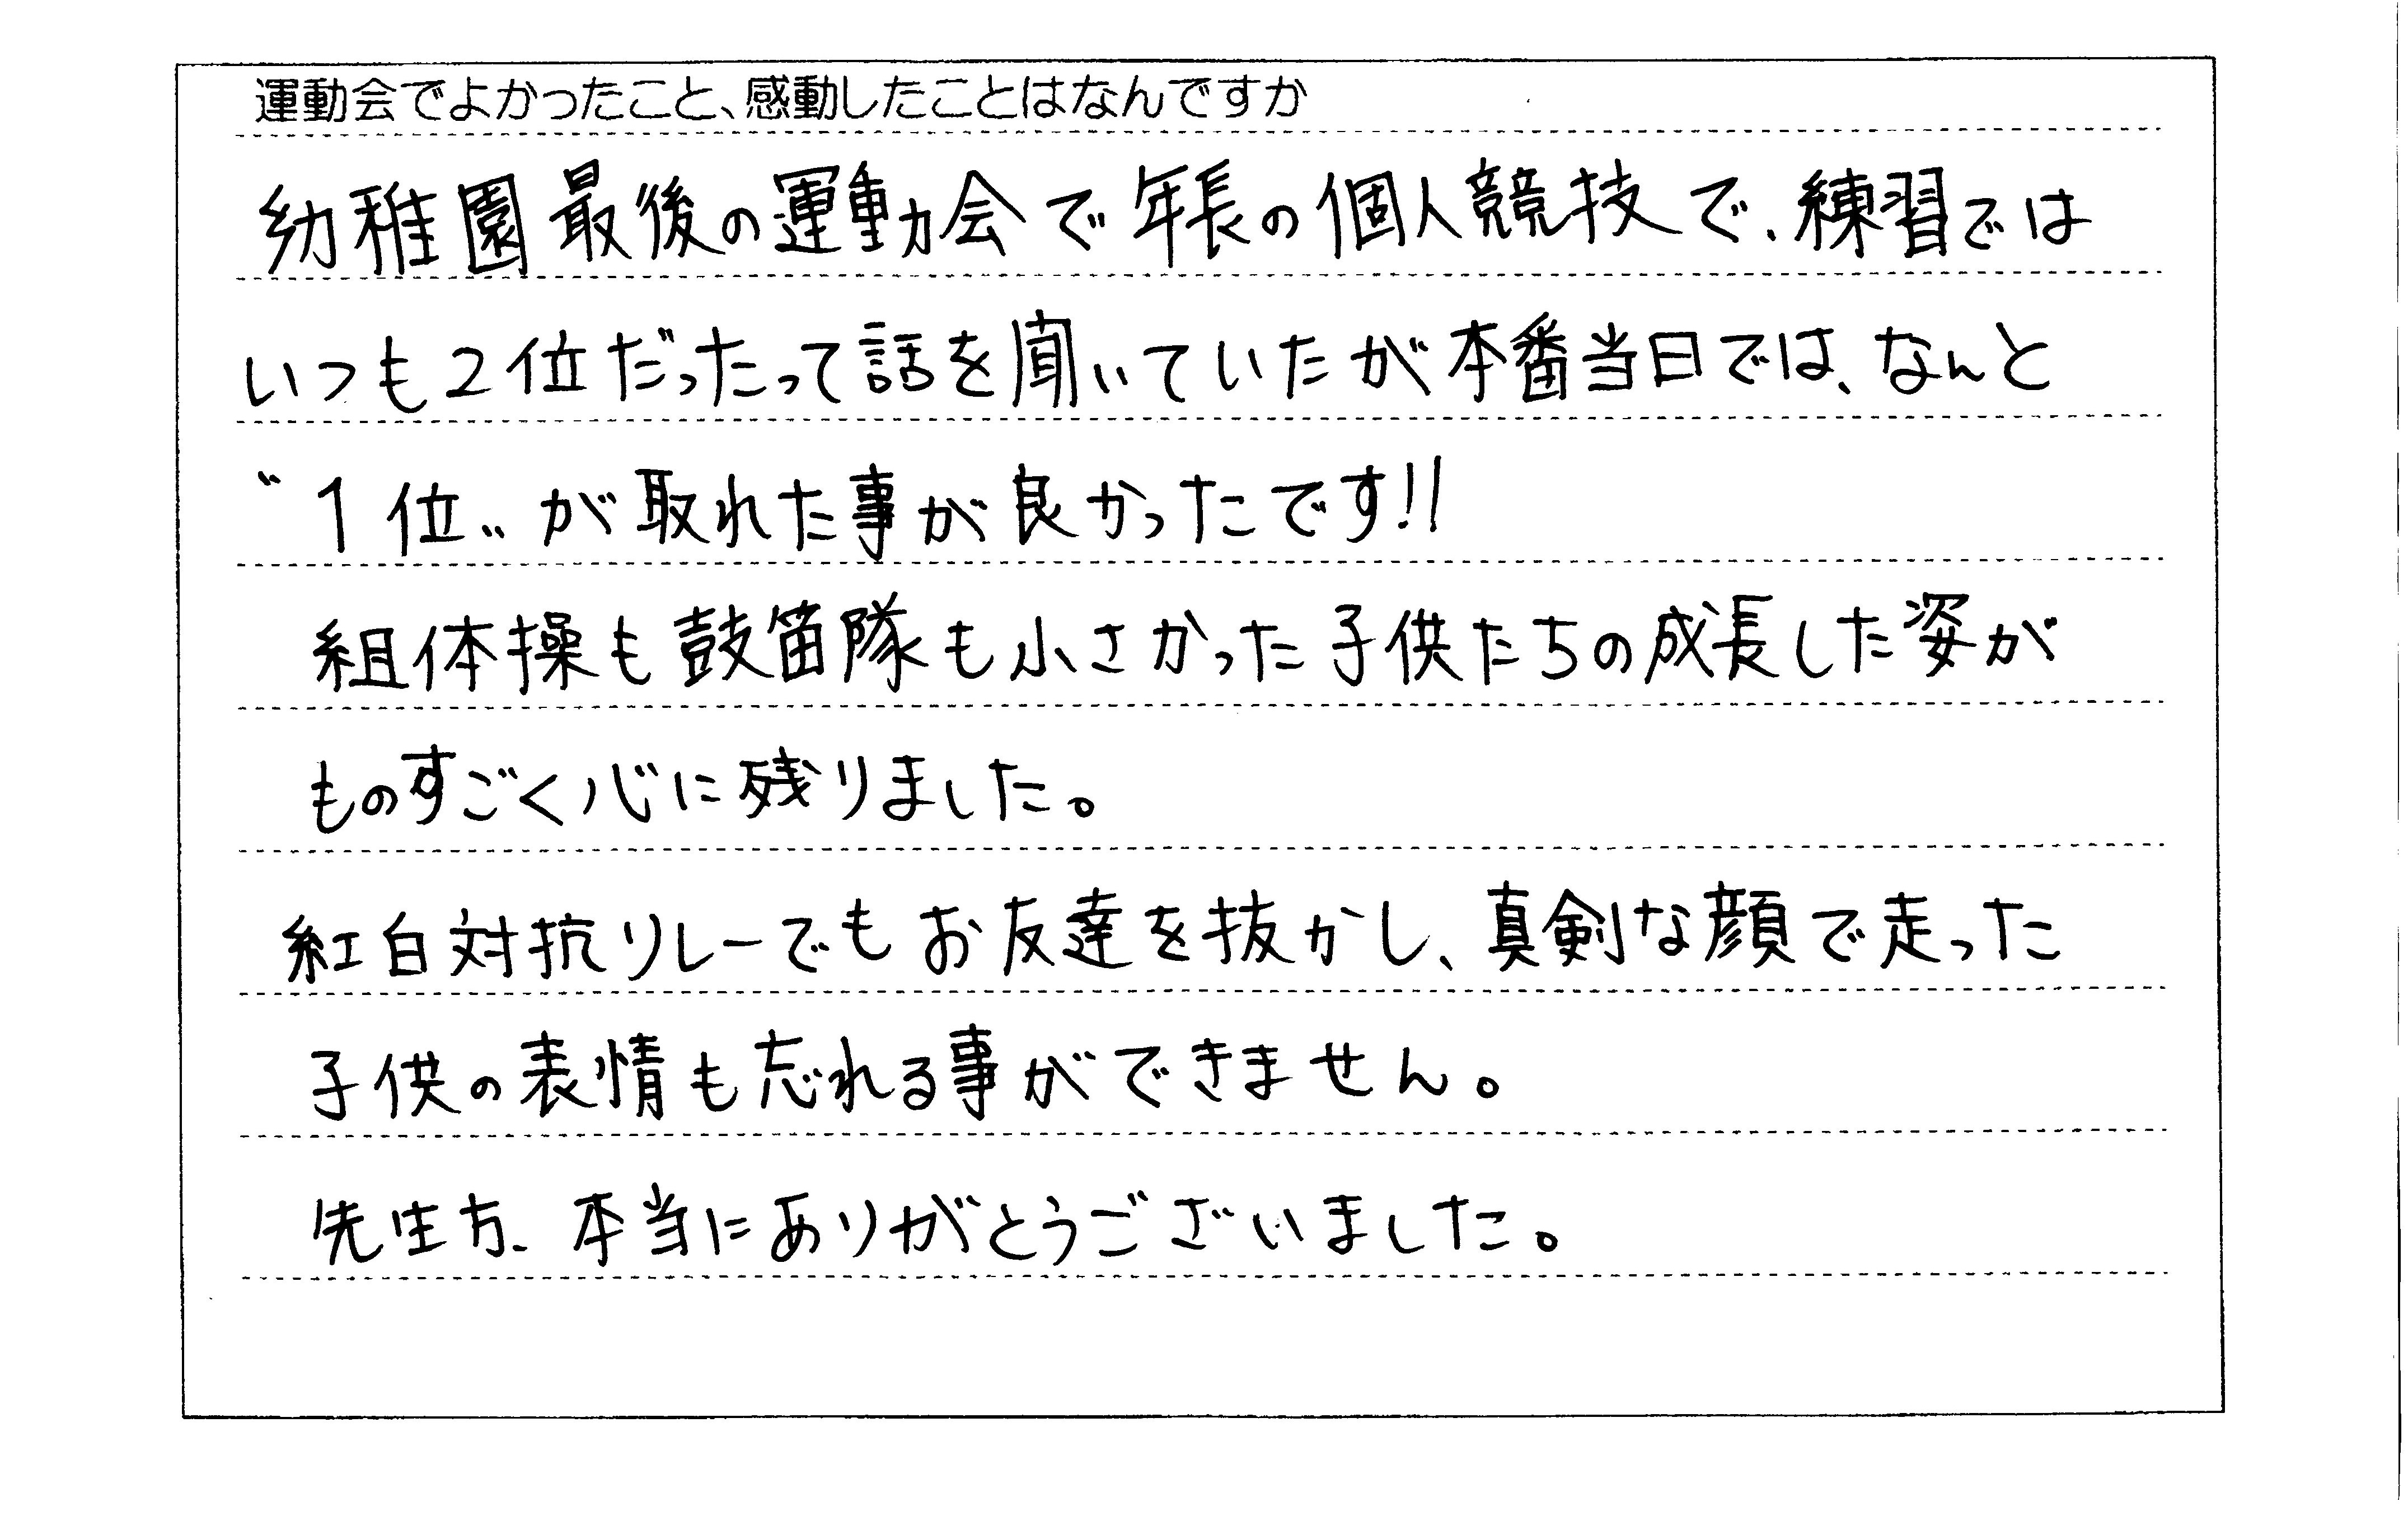 運動会でよかったこと、感動したことはなんですか
幼稚園最後の運動会で年長の個人競技で、練習では
いつも2位だったって話を聞いていたが本番当日では、なんと
〝1位〟が取れた事が良かったです!!
組体操も鼓笛隊も小さかった子供たちの成長した姿が
ものすごく心に残りました。
紅白対抗リレーでもお友達を抜かし、真剣な顔で走った
子供の表情も忘れる事ができません。
先生方、本当にありがとうございました。